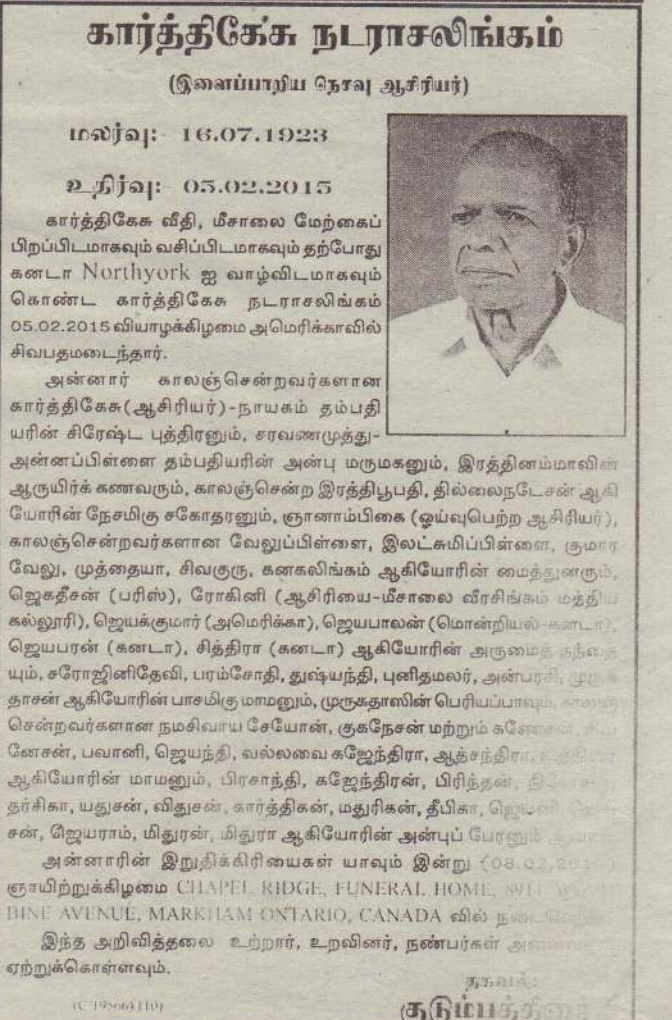 கார்த்திகேசு நடராசலிங்கம்
(இளைப்பாறிய நெசவு ஆசிரியர்)
மலர்வு:- 16.07.1923
உதிர்வு:- 05.02.2015
கார்த்திகேசு வீதி, மீசாலை மேற்கைப்
பிறப்பிடமாகவும் வசிப்பிடமாகவும் தற்போது
கனடா Northyork ஐ வாழ்விடமாகவும்
கொண்ட கார்த்திகேசு நடராசலிங்கம்
05.02.2015 வியாழக்கிழமை அமெரிக்காவில்
சிவபதமடைந்தார்.
அன்னார் காலஞ்சென்றவர்களான
கார்த்திகேசு(ஆசிரியர்)-நாயகம் தம்பதி
யரின் சிரேஷ்ட புத்திரனும், சரவணமுத்து-
அன்னப்பிள்ளை தம்பதியரின் அன்பு மருமகனும், இரத்தினம்மாவின்
ஆருயிர்க் கணவரும், காலஞ்சென்ற இரத்திபூபதி, தில்லைநடேசன் ஆகி
யோரின் நேசமிகு சகோதரனும், ஞானாம்பிகை (ஓய்வுபெற்ற ஆசிரியர்),
காலஞ்சென்றவர்களான வேலுப்பிள்ளை, இலட்சுமிப்பிள்ளை, குமார
வேலு, முத்தையா, சிவகுரு, கனகலிங்கம் ஆகியோரின் மைத்துனரும்,
ஜெகதீசன் (பரிஸ்), ரோகினி (ஆசிரியை-மீசாலை வீரசிங்கம் மத்திய
கல்லூரி), ஜெயக்குமார் (அமெரிக்கா), ஜெயபாலன் (மொன்றியல்-கனடா),
ஜெயபரன் (கனடா), சித்திரா (கனடா) ஆகியோரின் அருமைத் தந்தை
யும், சரோஜினிதேவி, பரம்சோதி, துஷ்யந்தி, புனிதமலர், அன்பரசி, முருக
தாசன் ஆகியோரின் பாசமிகு மாமனும், முருகதாஸின் பெரியப்பாவும்,
சென்றவர்களான நமசிவாய சேயோன், குகநேசன் மற்றும்
னேசன், பவானி, ஜெயந்தி, வல்லவை கஜேந்திரா, ஆத்சந்திரா,
ஆகியோரின் மாமனும், பிரசாந்தி, கஜேந்திரன், பிரிந்தன்,
தர்சிகா, யதுசன், விதுசன், கார்த்திகன், மதுரிகன், தீபிகா,
சன், ஜெயராம், மிதுரன், மிதுரா ஆகியோரின் அன்புப் பேரனும்
அன்னாரின் இறுதிக்கிரியைகள் யாவும் இன்று (08.02.
ஞாயிற்றுக்கிழமை CHAPEL RIDGE, FUNERAL HOME, 8911
BINE AVENUE, MARKHAM ONTARIO, CANADA வில்
இந்த அறிவித்தலை உற்றார், உறவினர், நண்பர்கள்
ஏற்றுக்கொள்ளவும்.
தகவல்:
குடும்பத்தினர்